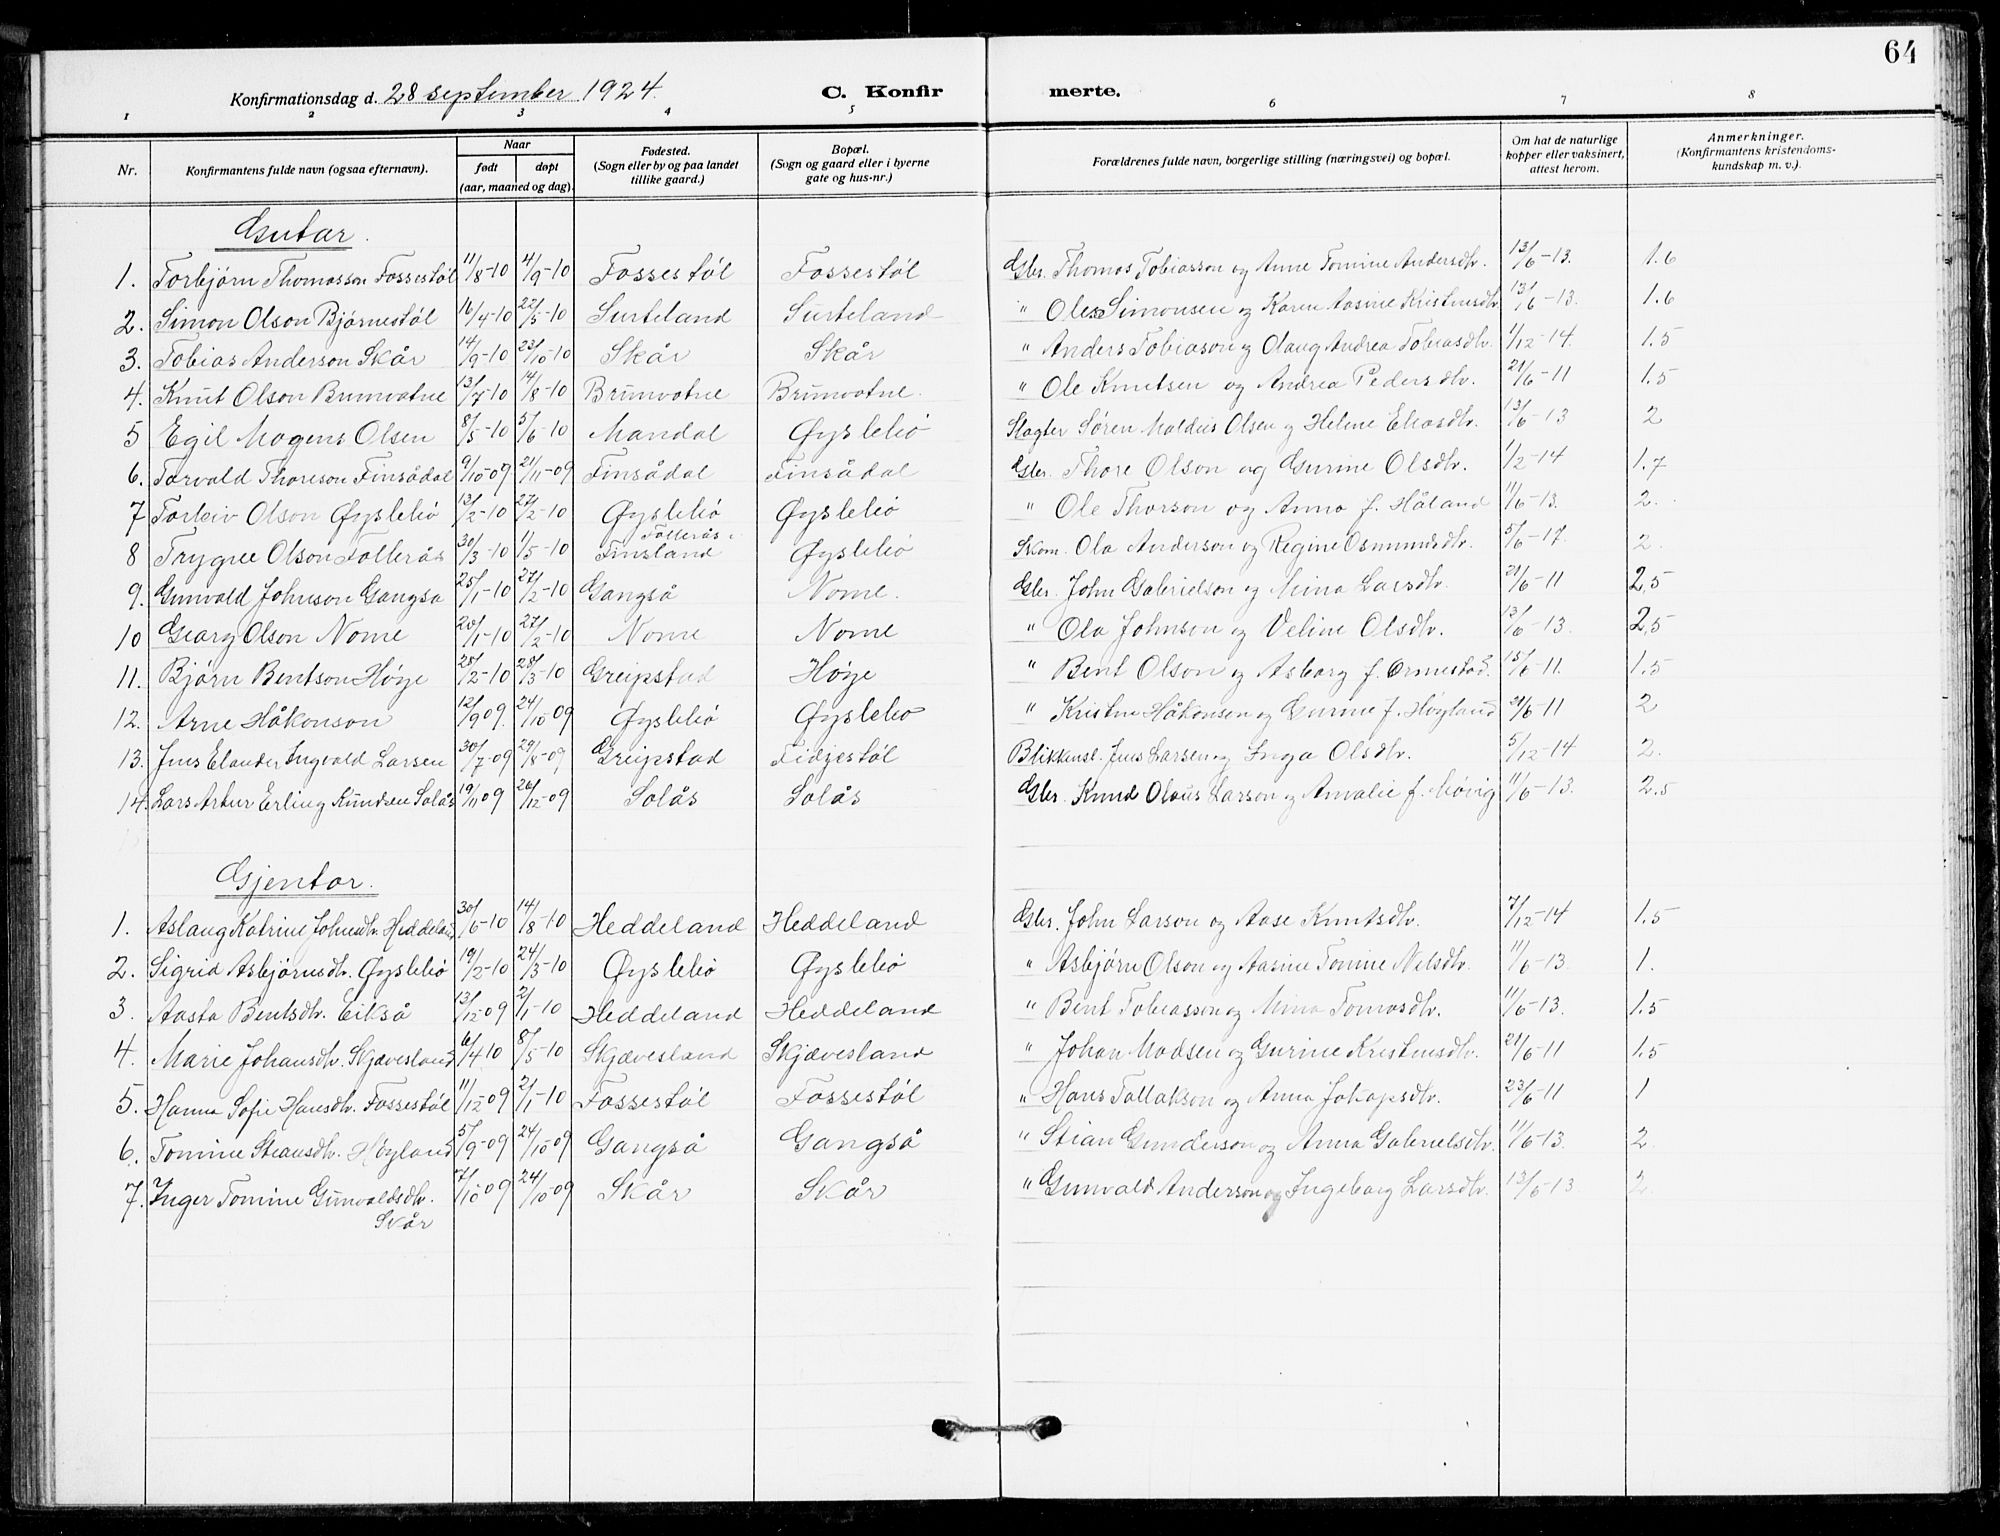 64
Konfirmationsdag d. 28 september 1924. C. Konfirmerte.
1 2 3 4 5 6 7 8
Nr. Konfirmantens fulde navn (ogsaa efternavn). Naar født døpt (aar, maaned og dag). Fødested. (Sogn eller by og paa landet tillike gaard.) Bopæl. (Sogn og gaard eller i byerne gate og hus-nr.) Forældrenes fulde navn, borgerlige stilling (næringsvei) og bopæl. Om hat de naturlige kopper eller vaksinert, attest herom. Anmerkninger. (Konfirmantens kristendomskundskap m. v.).
Gutar.
1. Torbjørn Thomasson Fossestøl 11/8-10 4/9-10 Fossestøl Fossestøl Gbr. Thomas Tobiasson og Anne Tomine Andersdtr. 13/6-13. 1.6
2. Simon Olson Bjørnestøl 16/4-10 22/5-10 Surteland Surteland " Ole Simonsen og Karen Aasine Kristensdtr. 13/6-13. 1.6
3. Tobias Anderson Skår 14/9-10 23/10-10 Skår Skår " Anders Tobiason og Olaug Andrea Tobiasdtr. 1/12-14. 1.5
4. Knut Olson Brunvatne 13/7-10 14/8-10 Brunvatne Brunvatne. " Ole Knutsen og Andrea Pedersdtr. 21/6-11 1.5
5 Egil Mogens Olsen 8/5-10 5/6-10 Mandal Øyslebø Slagter Søren Maldius Olsen og Helene Eliasdtr. 13/6-13 2
6. Torvald Thoreson Finsådal 9/10-09 21/11-09 Finsådal Finsådal Gbr. Thore Olson og Gurine Olsdtr. 1/2-14 1.7
7 Torleiv Olson Øyslebø 13/2-10 27/2-10 Øyslebø Øyslebø " Ole Thorson og Anna f. Håland 11/6-13. 2.
8 Trygve Olson Follerås 30/3-10 1/5-10 Follerås i Finsland Øyslebø Skom. Ola Anderson og Regine Osmundsdtr. 5/6-17. 2.
9. Gunvald Johnson Gangså 25/1-10 27/2-10 Gangså Nome. Gbr. John Gabrielson og Mina Larsdtr. 21/6-11 2,5
10 Georg Olson Nome 20/1-10 27/2-10 Nome Nome " Ola Johnson og Veline Olsdtr. 13/6-13. 2,5
11. Bjørn Bentson Høye 25/2-10 28/3-10 Greipstad Høye " Bent Olson og Asborg f. Ormestad 15/6-11. 1.5
12. Arne Håkonson 12/9 09. 24/10 09 Øyslebø Øyslebø " Kristen Håkonsen og Gurine f. Høyland 21/6-11 2
13. Jens Elander Ingvald Larsen 30/7-09 29/8-09 Greipstad Fidjestøl Blikkensl. Jens Larsen og Inga Olsdtr. 5/12-14 2.
14. Lars Artur Erling Knudsen Solås 19/11 09 26/12-09 Solås Solås Gbr. Knud Olaus Larson og Amalie f. Møvig 11/6-13. 2.5
Gjentor.
1. Aslaug Katrine Johnsdtr. Heddeland 30/6-10 14/8-10 Heddeland Heddeland Gbr. John Larson og Aase Knutsdtr. 7/12-14 1.5
2. Sigrid Asbjørnsdtr. Øyslebø 19/2-10 24/3-10 Øyslebø Øyslebø " Asbjørn Olson og Aasine Tomine Nilsdtr. 11/6-13. 1.
3. Aasta Bentsdtr. Eikså 13/12-09 2/1-10 Heddeland Heddeland " Bent Tobiasson og Mina Tomasdtr. 11/6-13. 1.5
4. Marie Johansdtr. Skjævesland 6/4 10 8/5-10 Skjævesland Skjævesland " Johan Madsen og Gurine Kristensdtr. 21/6-11 1.5
5. Hanna Sofie Hansdtr. Fossestøl 11/12 09 2/1-10 Fossestøl Fossestøl " Hans Tallakson og Anna Jakopsdtr. 23/6-11 1
6. Tomine Stiansdtr. Høyland 5/9-09 24/10 09 Gangså Gangså " Stian Gunderson og Anna Gabrielsdtr. 11/6-13. 2.
7. Inger Tomine Gunvaldsdtr. 7/10 09 24/10-09 Skår Skår " Gunvald Anderson og Ingeborg Larsdtr. 13/6-13 2
Skår